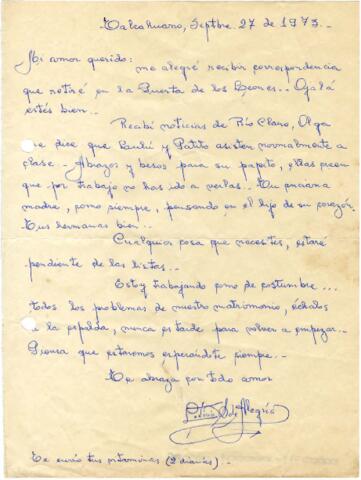 Talcahuano, Septbre. 27 de 1973.-
Mi amor querido:
me alegré recibir correspondencia
que retiré en la Puerta de los Leones.. Ojalá
estés bien..
Recibí noticias de Río Claro, Olga
me dice que Laudri y Patito asisten normalmente a
clase.- Abrazos y besos para su papito, ellas creen
que por trabajo no has ido a verlas.- Tu anciana
madre, como siempre, pensando en el hijo de su corazón.
Tus hermanas bien..
Cualquier cosa que necesites, estaré
pendiente de las listas..
Estoy trabajando como de costumbre...
todos los problemas de nuestro matrimonio, échalos
a la espalda, nunca es tarde para volver a empezar..
Piensa que estaremos esperándote siempre..-
Te abraza con todo amor
de Alegría
Te envío tus vitaminas (2 diarias).-